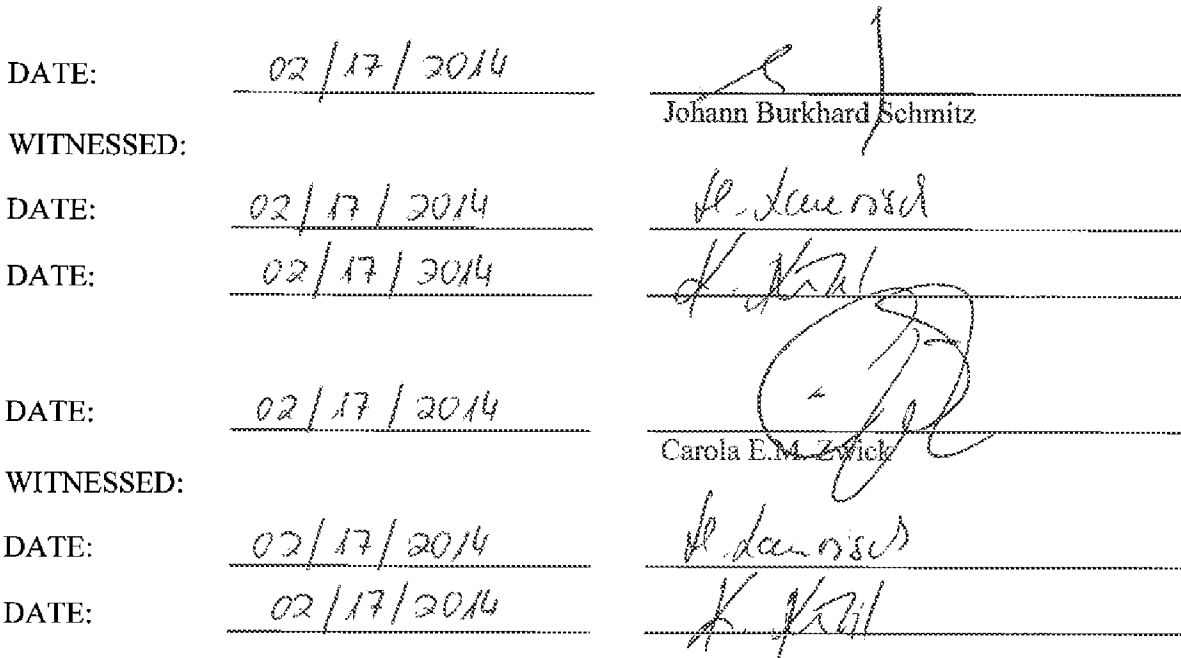 DATE: 02/17/2014
Johann Burkhard Schmitz
WITNESSED:
DATE: 02/17/2014
DATE: 02/17/2014 K.
DATE: 02/17/2014
Carola E.M. Zwick
WITNESSED:
DATE: 02/17/2014
DATE: 02/17/2014 K.